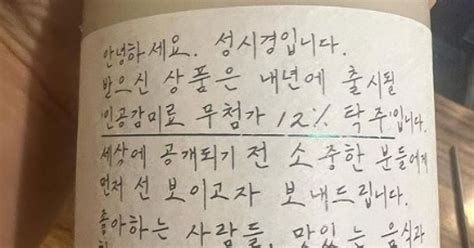 안녕하세요. 성시경입니다.
받으신 상품은 내년에 출시될
'인공감미료 무첨가 12% 탁주'입니다.
세상에 공개되기 전 소중한 분들에게
먼저 선 보이고자 보내드립니다.
좋아하는 사람들, 맛있는 음식과